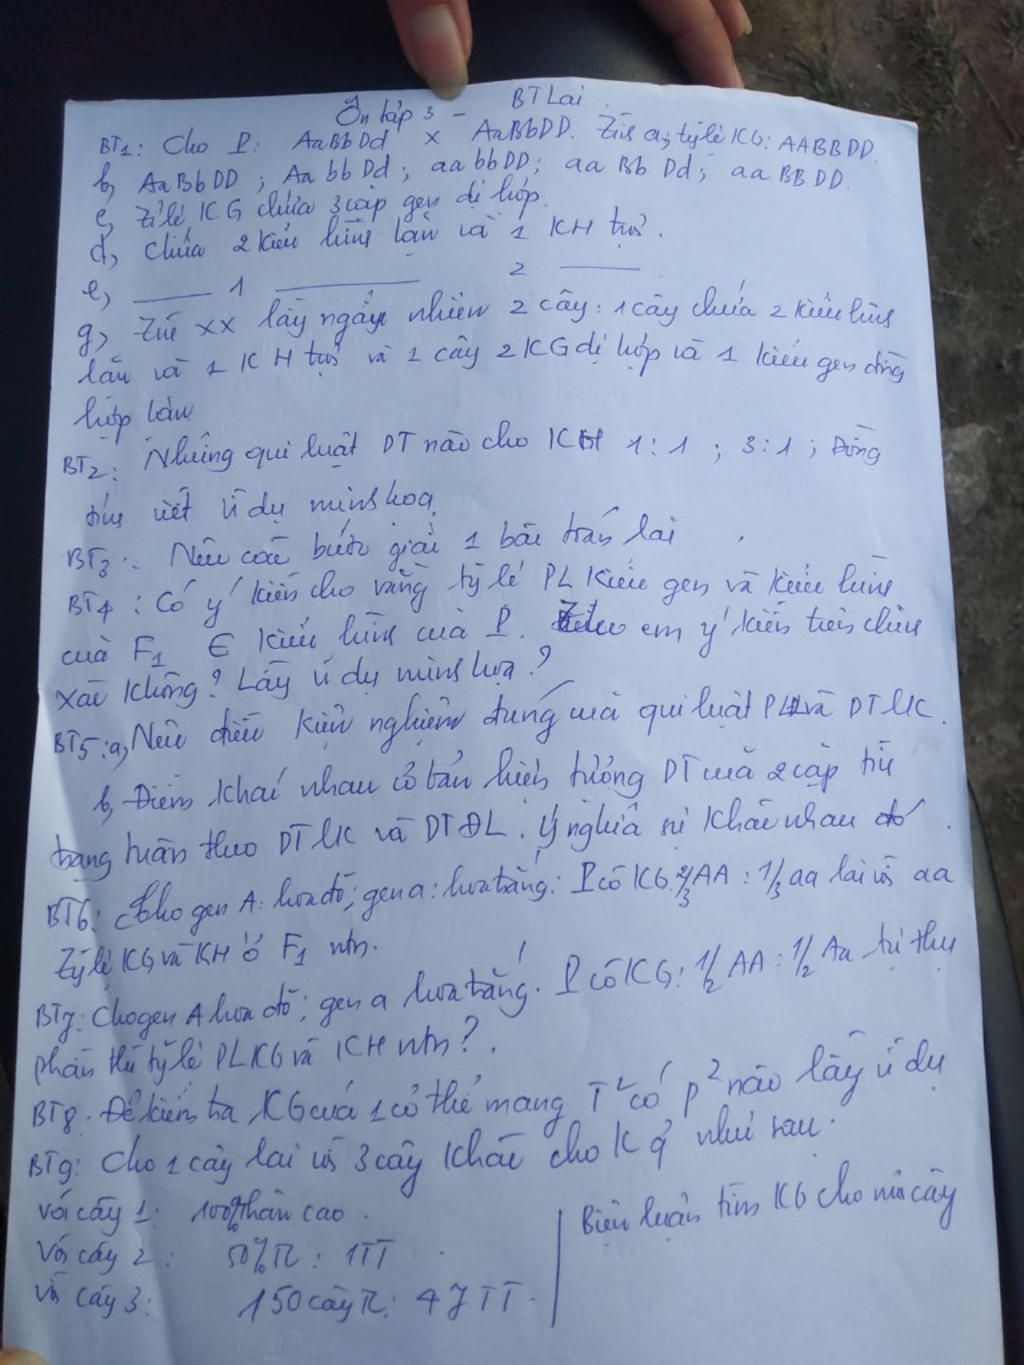 Ôn tập 3 - BT Lai
BT1: Cho P: AaBbDd x AaBbDD. Tính a, tỷ lệ KG: AABBDD
b, AaBbDD ; AabbDd ; aabbDD ; aaBbDd ; aaBBDD.
c, Tỉ lệ KG chứa 3 cặp gen dị hợp.
d, Chứa 2 kiểu hình lặn và 1 KH trội.
e, ___ 1 ___ 2 ___
g, Tính xx lấy ngẫu nhiên 2 cây: 1 cây chứa 2 kiểu hình
lặn và 1 KH trội và 1 cây 2 KG dị hợp và 1 kiểu gen đồng
hợp lặn
BT2: Những qui luật DT nào cho KH 1:1 ; 3:1 ; Đồng
tính viết ví dụ minh hoạ
BT3: Nêu các bước giải 1 bài toán lai
BT4: Có ý kiến cho rằng tỷ lệ PL kiểu gen và kiểu hình
của F1 ∈ kiểu hình của P. em ý kiến trên chính
xác không? Lấy ví dụ minh hoạ?
BT5: a, Nêu điều kiện nghiệm đúng của qui luật PL và DTLK.
b, Điểm khác nhau cơ bản hiện tượng DT của 2 cặp tính
trạng tuân theo DTLK và DTĐL. Ý nghĩa sự khác nhau đó.
BT6: Cho gen A: hoa đỏ; gen a: hoa trắng: P có KG: 2/3AA : 1/3aa lai với aa
Tỷ lệ KG và KH ở F1 ntn.
BT7: Cho gen A hoa đỏ; gen a hoa trắng. P có KG: 1/2 AA : 1/2 Aa tự thụ
phấn thì tỷ lệ PLKG và KH ntn?.
BT8. Để kiểm tra KG của 1 cơ thể mang T² có p² nào lấy ví dụ
BT9: Cho 1 cây lai với 3 cây khác cho KQ như sau.
Với cây 1: 100% thân cao.
Với cây 2: 50% : 1TT
với cây 3: 150 cây : 47 TT.
Biện luận tìm KG cho mỗi cây